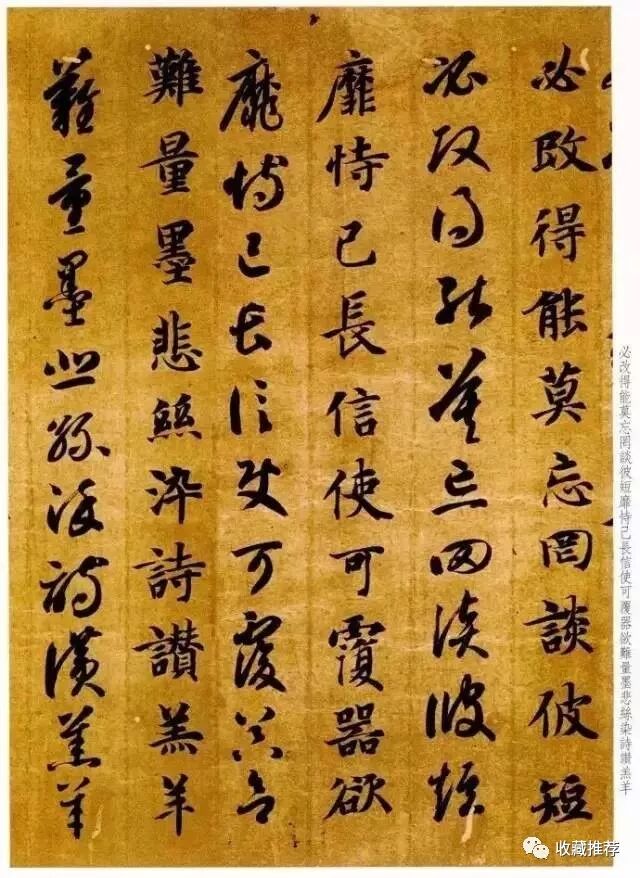 必改得能莫忘罔談彼短
必改得能莫忘罔談彼短
靡恃己長信使可覆器欲
靡恃己長信使可覆器欲
難量墨悲絲染詩讚羔羊
難量墨悲絲染詩讚羔羊
必改得能莫忘罔談彼短靡恃己長信使可覆器欲難量墨悲絲染詩讚羔羊
收藏推荐